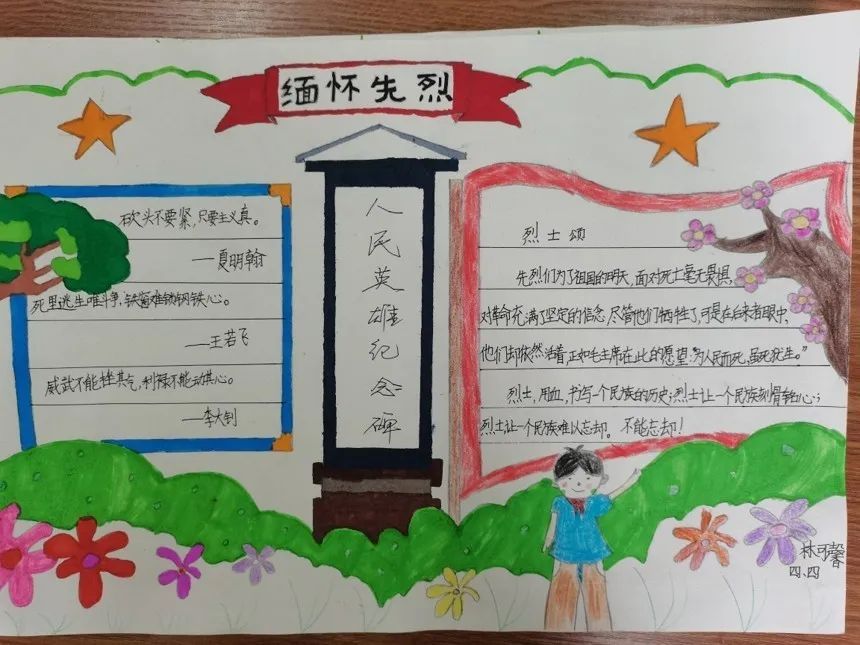 缅怀先烈
砍头不要紧,只要主义真。
——夏明翰
死里逃生唯斗争,铁窗难锁钢铁心。
——王若飞
威武不能挫其气,利禄不能动其心。
——李大钊
人民英雄纪念碑
烈士颂
先烈们为了祖国的明天,面对死亡毫无畏惧,
对革命充满了坚定的信念,尽管他们牺牲了,可是在后来者眼中,
他们却依然活着,正如毛主席在此的愿望:为人民而死,虽死犹生。”
烈士,用血,书写一个民族的历史;烈士让一个民族刻骨铭心;
烈士让一个民族难以忘却。不能忘却!
林可馨
四、四